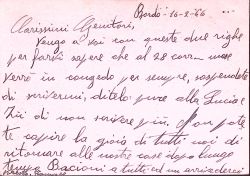 Bordò - 16-2-66
Carissimi Genitori,
Vengo a voi con queste due righe
per farvi sapere che al 28 corr. mese
verrò in congedo per sempre, sospendete
di scrivermi, ditelo pure alla Lucia e
Zii di non scrivere più. Non potete
capire la gioia di tutti noi di
ritornare alle nostre case dopo lungo
tempo Bacioni a tutti ed un arrivederci